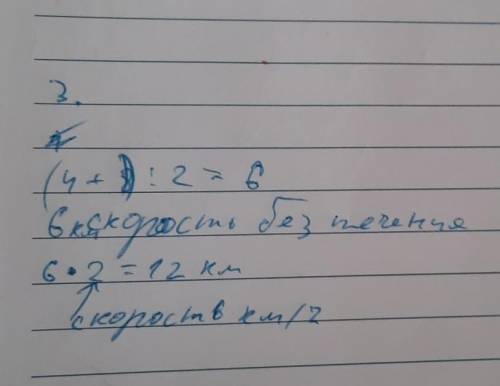 3.
(4 + 8) : 2 = 6
6 км скорость без течения
6 • 2 = 12 км
скорость км/ч